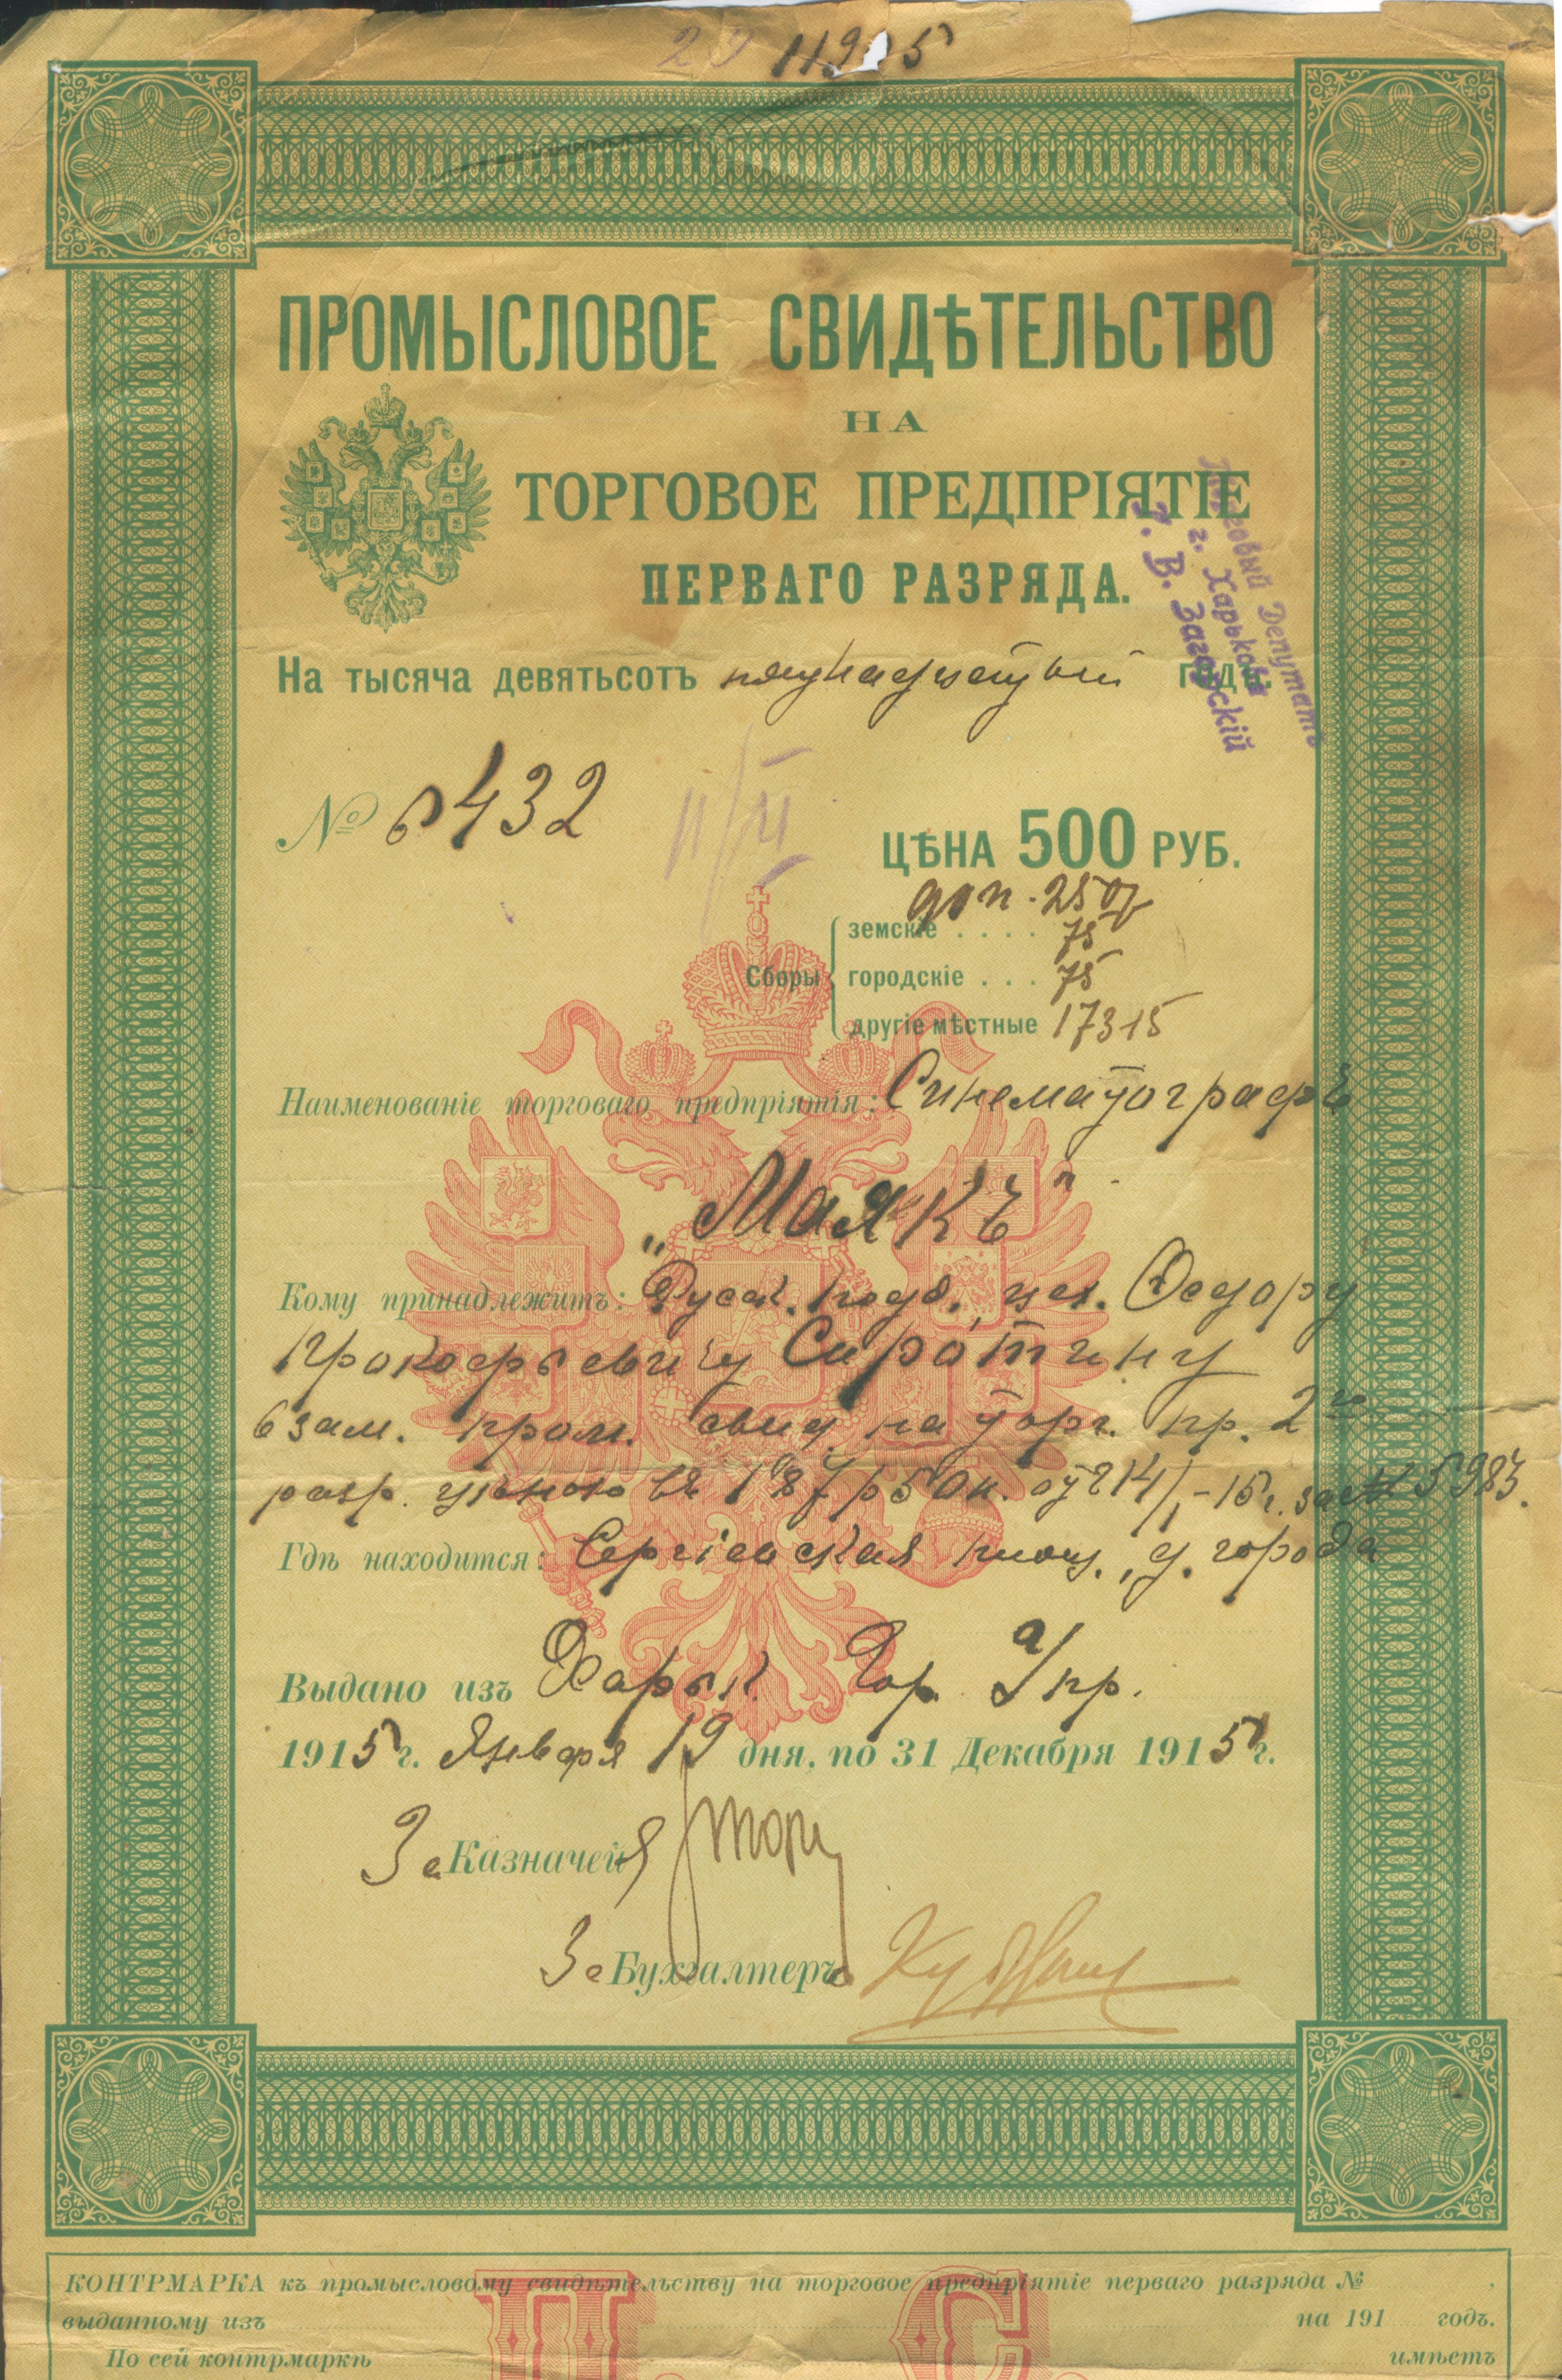 ПРОМЫСЛОВОЕ СВИДѢТЕЛЬСТВО
НА
ТОРГОВОЕ ПРЕДПРІЯТІЕ
ПЕРВАГО РАЗРЯДА.
Торговый Депутатъ
г. Харькова
В. Загорскій
На тысяча девятьсотъ пятнадцатый годъ.
№ 6432
ЦѢНА 500 РУБ.
доп. 250р
Сборы
земскіе . . . . 75
городскіе . . . 75
другіе мѣстные 173 15
Наименованіе торговаго предпріятія: Синематографъ
„Маякъ"
Кому принадлежитъ: Русск. подд. Ѳедору
Прокофьевичу Сиротину
взам. пром. свид. на торг. пр. 2го
разр. цѣною въ 187 р 50 к. от 14/1 - 15 г. за № 5983.
Гдѣ находится: Сергіевская площ., д. города
Выдано изъ Харьк. Гор. Упр.
1915 г. Января 19 дня, по 31 Декабря 1915 г.
За Казначея
За Бухгалтера
КОНТРМАРКА къ промысловому свидѣтельству на торговое предпріятіе перваго разряда № ,
выданному изъ на 191 годъ.
По сей контрмаркѣ имѣетъ
П. С.